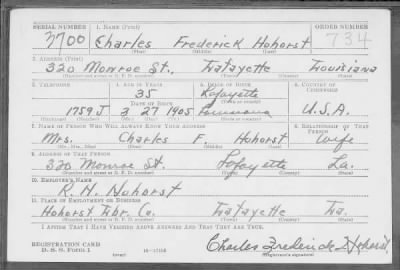 SERIAL NUMBER 1. NAME (Print) ORDER NUMBER
3700 Charles Frederick Hohorst 734
(First) (Middle) (Last)
2. ADDRESS (Print)
320 Monroe St., Lafayette Louisiana
(Number and street or R. F. D. number) (Town) (County) (State)
3. TELEPHONE 4. AGE IN YEARS 5. PLACE OF BIRTH 6. COUNTRY OF CITIZENSHIP
35 Lafayette
(Town or county)
DATE OF BIRTH
1759 J 3 27 1905 Louisiana U.S.A.
(Exchange) (Number) (Mo.) (Day) (Yr.) (State or country)
7. NAME OF PERSON WHO WILL ALWAYS KNOW YOUR ADDRESS 8. RELATIONSHIP OF THAT PERSON
Mrs. Charles F Hohorst Wife
(Mr., Mrs., Miss) (First) (Middle) (Last)
9. ADDRESS OF THAT PERSON
320 Monroe St. Lafayette La.
(Number and street or R. F. D. number) (Town) (County) (State)
10. EMPLOYER'S NAME
R. H. Hohorst
11. PLACE OF EMPLOYMENT OR BUSINESS
Hohorst Lbr. Co. Lafayette La.
(Number and street or R. F. D. number) (Town) (County) (State)
I AFFIRM THAT I HAVE VERIFIED ABOVE ANSWERS AND THAT THEY ARE TRUE.
REGISTRATION CARD
D. S. S. Form 1 Charles Frederick Hohorst
(Registrant's signature)